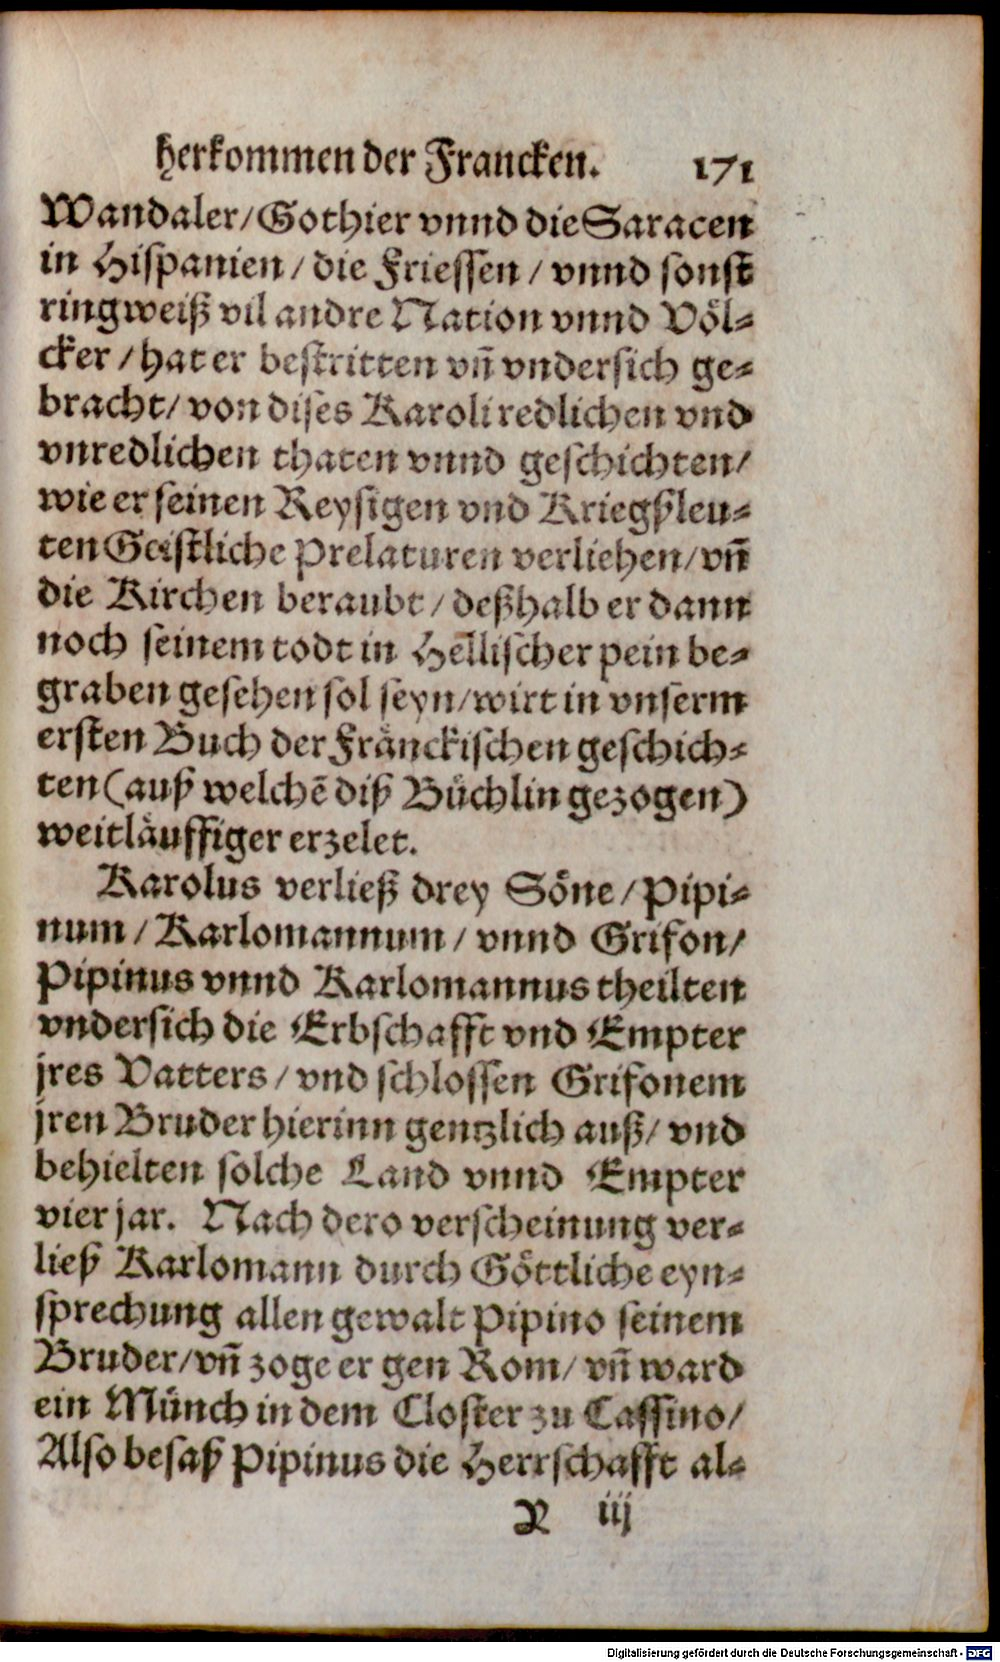 herkommen der Francken. 171
Wandaler/Gothier vnnd die Saracen
in Hispanien/die Friessen/vnnd sonst
ringweiß vil andre Nation vnnd Völ⸗
cker/hat er bestritten vñ vndersich ge⸗
bracht/von dises Karoli redlichen vnd
vnredlichen thaten vnnd geschichten/
wie er seinen Reysigen vnd Kriegßleu⸗
ten Geistliche Prelaturen verliehen/vñ
die Kirchen beraubt/deßhalb er dann
noch seinem todt in Hellischer pein be⸗
graben gesehen sol seyn/wirt in vnserm
ersten Buch der Fränckischen geschich⸗
ten (auß welchē diß Büchlin gezogen)
weitläuffiger erzelet.
Karolus verließ drey Söne/Pipi⸗
num/Karlomannum/vnnd Grifon/
Pipinus vnnd Karlomannus theilten
vndersich die Erbschafft vnd Empter
jres Vatters/vnd schlossen Grifonem
jren Bruder hierinn gentzlich auß/vnd
behielten solche Land vnnd Empter
vier jar. Nach dero verscheinung ver⸗
ließ Karlomann durch Göttliche eyn⸗
sprechung allen gewalt Pipino seinem
Bruder/vñ zoge er gen Rom/vñ ward
ein Münch in dem Closter zu Cassino/
Also besaß Pipinus die Herrschafft al⸗
Y iij
Digitalisierung gefördert durch die Deutsche Forschungsgemeinschaft - DFG